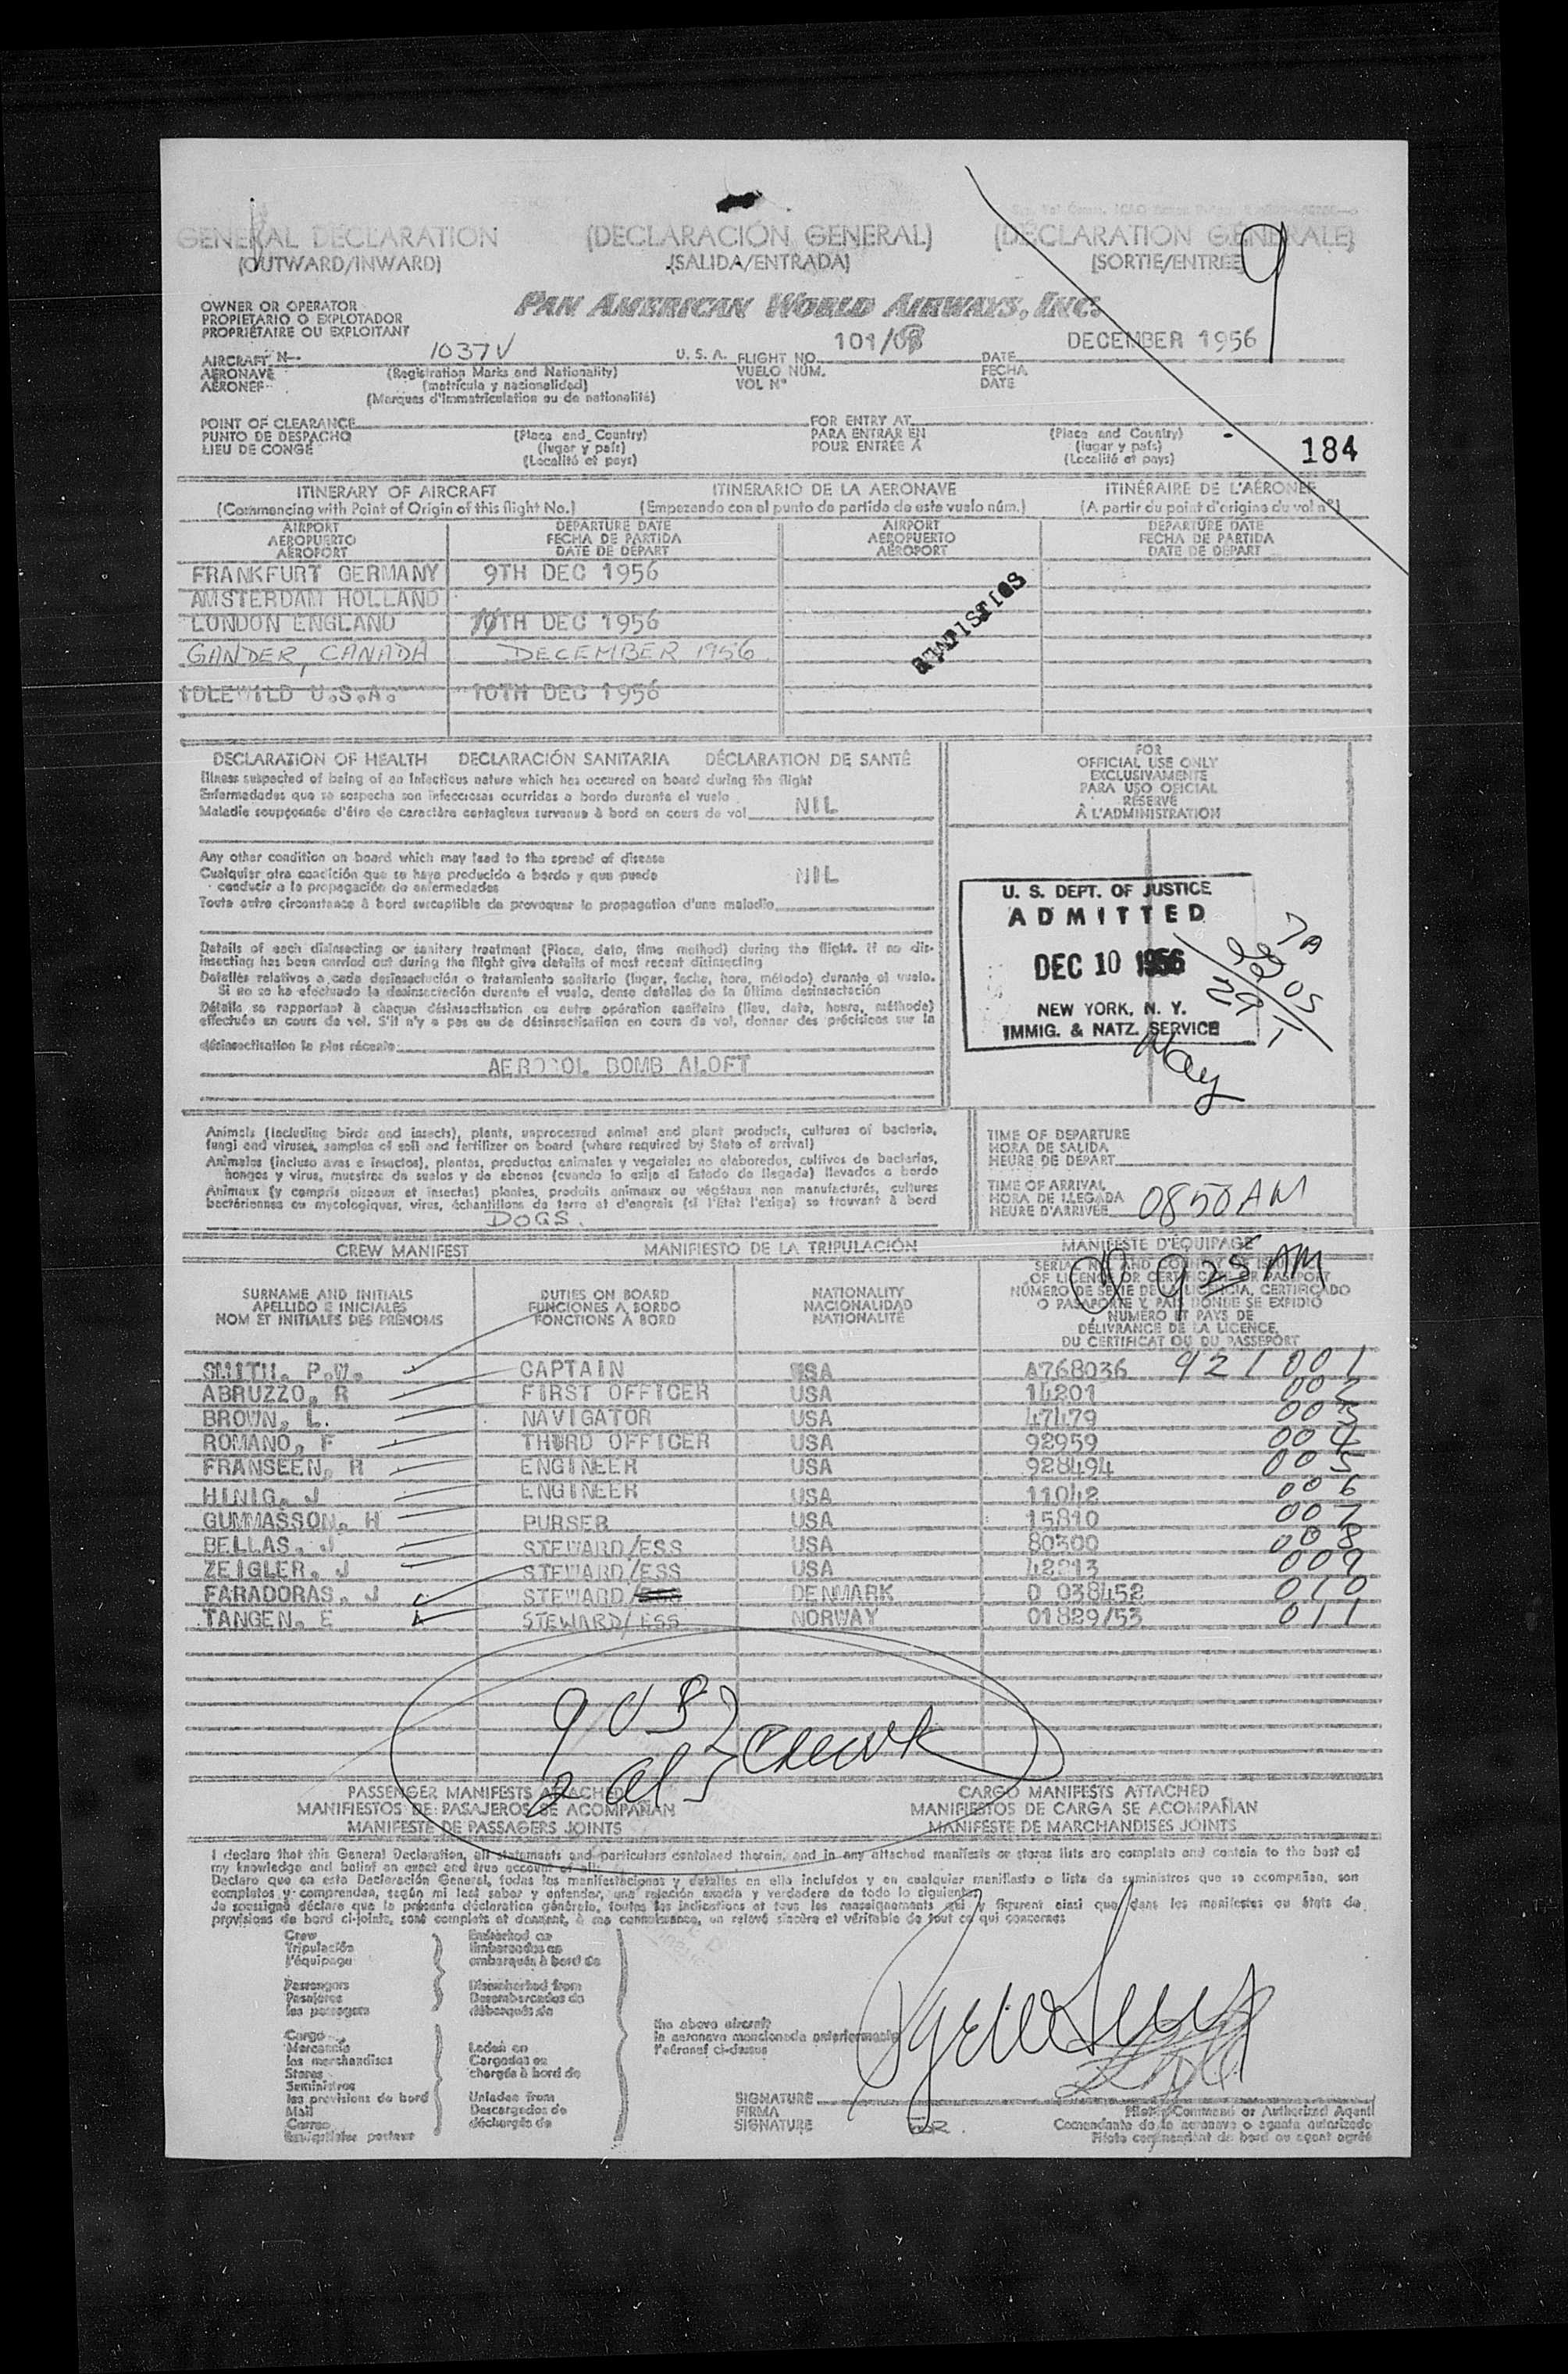 GENERAL DECLARATION (DECLARACIÓN GENERAL) (DÉCLARATION GÉNÉRALE)
(OUTWARD/INWARD) (SALIDA/ENTRADA) (SORTIE/ENTRÉE)
9
OWNER OR OPERATOR
PROPIETARIO O EXPLOTADOR
PROPRIÉTAIRE OU EXPLOITANT
PAN AMERICAN WORLD AIRWAYS, INC.
AIRCRAFT N- 1037V U.S.A. FLIGHT NO. 101/ DATE DECEMBER 1956
AERONAVE (Registration Marks and Nationality) VUELO NÚM. FECHA
AÉRONEF (matrícula y nacionalidad) VOL Nº DATE
(Marques d'immatriculation ou de nationalité)
POINT OF CLEARANCE FOR ENTRY AT
PUNTO DE DESPACHO (Place and Country) PARA ENTRAR EN (Place and Country)
LIEU DE CONGÉ (lugar y país) POUR ENTRÉE À (lugar y país)
(Localité et pays) (Localité et pays)
184
ITINERARY OF AIRCRAFT ITINERARIO DE LA AERONAVE ITINÉRAIRE DE L'AÉRONEF
(Commencing with Point of Origin of this flight No.) (Empezando con el punto de partida de este vuelo núm.) (A partir du point d'origine du vol nº)
AIRPORT DEPARTURE DATE AIRPORT DEPARTURE DATE
AEROPUERTO FECHA DE PARTIDA AEROPUERTO FECHA DE PARTIDA
AÉROPORT DATE DE DÉPART AÉROPORT DATE DE DÉPART
FRANKFURT GERMANY 9TH DEC 1956
AMSTERDAM HOLLAND
LONDON ENGLAND TH DEC 1956
GANDER, CANADA DECEMBER 1956
IDLEWILD U.S.A. 10TH DEC 1956
STATISTICS
DECLARATION OF HEALTH DECLARACIÓN SANITARIA DÉCLARATION DE SANTÉ
Illness suspected of being of an infectious nature which has occured on board during the flight
Enfermedades que se sospecha son infecciosas ocurridas a bordo durante el vuelo
Maladie soupçonnée d'être de caractère contagieux survenue à bord en cours de vol NIL
Any other condition on board which may lead to the spread of disease
Cualquier otra condición que se haya producido a bordo y que puede
conducir a la propagación de enfermedades NIL
Toute autre circonstance à bord susceptible de provoquer la propagation d'une maladie
Details of each disinsecting or sanitary treatment (Place, date, time method) during the flight. If no dis-
insecting has been carried out during the flight give details of most recent disinsecting
Detalles relativos a cada desinsectación o tratamiento sanitario (lugar, fecha, hora, método) durante el vuelo.
Si no se ha efectuado la desinsectación durante el vuelo, dense detalles de la última desinsectación
Détails se rapportant à chaque désinsectisation ou autre opération sanitaire (lieu, date, heure, méthode)
effectuée en cours de vol. S'il n'y a pas eu de désinsectisation en cours de vol, donner des précisions sur la
désinsectisation la plus récente
AEROSOL BOMB ALOFT
FOR
OFFICIAL USE ONLY
EXCLUSIVAMENTE
PARA USO OFICIAL
RÉSERVÉ
À L'ADMINISTRATION
U. S. DEPT. OF JUSTICE
ADMITTED
DEC 10 1956
NEW YORK, N. Y.
IMMIG. & NATZ. SERVICE
Animals (including birds and insects), plants, unprocessed animal and plant products, cultures of bacteria,
fungi and viruses, samples of soil and fertilizer on board (where required by State of arrival)
Animales (incluso aves e insectos), plantas, productos animales y vegetales no elaborados, cultivos de bacterias,
hongos y virus, muestras de suelos y de abonos (cuando lo exija el Estado de llegada) llevados a bordo
Animaux (y compris oiseaux et insectes) plantes, produits animaux ou végétaux non manufacturés, cultures
bactériennes ou mycologiques, virus, échantillons de terre et d'engrais (si l'État l'exige) se trouvant à bord
DOGS.
TIME OF DEPARTURE
HORA DE SALIDA
HEURE DE DÉPART
TIME OF ARRIVAL
HORA DE LLEGADA
HEURE D'ARRIVÉE 0850AM
925 AM
CREW MANIFEST MANIFIESTO DE LA TRIPULACIÓN MANIFESTE D'ÉQUIPAGE
SURNAME AND INITIALS DUTIES ON BOARD NATIONALITY SERIAL NO. AND COUNTRY OF ISSUE
APELLIDO E INICIALES FUNCIONES A BORDO NACIONALIDAD OF LICENCE OR CERTIFICATE OR PASSPORT
NOM ET INITIALES DES PRÉNOMS FONCTIONS À BORD NATIONALITÉ NÚMERO DE SERIE DE LA LICENCIA, CERTIFICADO
O PASAPORTE Y PAÍS DONDE SE EXPIDIÓ
NUMÉRO ET PAYS DE
DÉLIVRANCE DE LA LICENCE,
DU CERTIFICAT OU DU PASSEPORT
SMITH. P.W. CAPTAIN USA A768036 921 001
ABRUZZO, R FIRST OFFICER USA 14201 002
BROWN, L. NAVIGATOR USA 47479 003
ROMANO, F THIRD OFFICER USA 92959 004
FRANSEEN, H ENGINEER USA 928494 005
HINIG, J ENGINEER USA 11042 006
GUMMASSON, H PURSER USA 15810 007
BELLAS, J STEWARD/ESS USA 80300 008
ZEIGLER, J STEWARD/ESS USA 42213 009
FARADORAS, J STEWARD/ESS DENMARK D 038452 010
TANGEN, E STEWARD/ESS NORWAY 01829/53 011
9 US
2 al
PASSENGER MANIFESTS ATTACHED CARGO MANIFESTS ATTACHED
MANIFIESTOS DE PASAJEROS SE ACOMPAÑAN MANIFIESTOS DE CARGA SE ACOMPAÑAN
MANIFESTE DE PASSAGERS JOINTS MANIFESTE DE MARCHANDISES JOINTS
I declare that this General Declaration, all statements and particulars contained therein, and in any attached manifests or stores lists are complete and contain to the best of
my knowledge and belief an exact and true account of all:
Declaro que en esta Declaración General, todas las manifestaciones y detalles en ella incluídos y en cualquier manifiesto o lista de suministros que se acompañan, son
completos y comprenden, según mi leal saber y entender, una relación exacta y verdadera de todo lo siguiente:
Je soussigné déclare que la présente déclaration générale, toutes les indications et tous les renseignements qui y figurent ainsi que dans les manifestes ou états de
provisions de bord ci-joints, sont complets et donnent, à ma connaissance, un relevé sincère et véritable de tout ce qui concerne:
Crew Embarked on
Tripulación Embarcados en
l'équipage embarqués à bord de
Passengers Disembarked from
Pasajeros Desembarcados de
les passagers débarqués de
Cargo
Mercancía Laden on
les marchandises Cargados en
Stores chargés à bord de
Suministros
les provisions de bord Unladen from
Mail Descargados de
Correo déchargés de
the above aircraft
la aeronave mencionada anteriormente
l'aéronef ci-dessus
SIGNATURE
FIRMA
SIGNATURE FOR
Pilot in Command or Authorized Agent
Comandante de la aeronave o agente autorizado
Pilote commandant de bord ou agent agréé